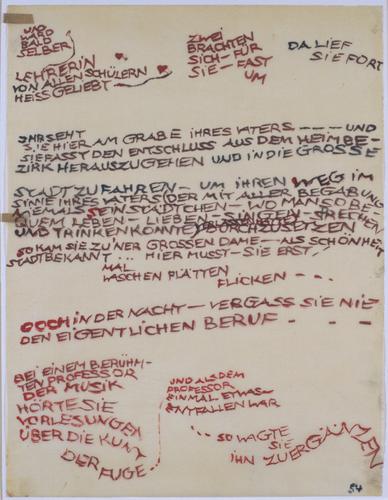 UND
WARD
BALD
SELBER
LEHRERIN
VON ALLEN SCHÜLERN
HEISS GELIEBT —
ZWEI
BRACHTEN
SICH — FÜR
SIE — FAST
UM
DA LIEF
SIE FORT
IHR SEHT
SIE HIER AM GRABE IHRES VATERS — — — UND
SIE FASST DEN ENTSCHLUSS AUS DEM HEIMBE-
ZIRK HERAUSZUGEHEN UND IN DIE GROSSE
STADT ZU FAHREN — UM IHREN WEG IM
SINNE IHRES VATERS (DER MIT ALLER BEGABUNG
NIEMALS SEIN STÄDTCHEN — WO MAN SO BE-
QUEM LEBEN — LIEBEN — SINGEN — SPRECHEN
UND TRINKEN KONNTE) DURCHZUSETZEN
SO KAM SIE ZU'NER GROSSEN DAME — ALS SCHÖNHEIT
STADTBEKANNT ... HIER MUSST — SIE ERST
MAL
WASCHEN PLÄTTEN
FLICKEN — — —
DOCH IN DER NACHT — VERGASS SIE NIE
DEN EIGENTLICHEN BERUF — — —
BEI EINEM BERÜHM-
TEN PROFESSOR
DER MUSIK
HÖRTE SIE
VORLESUNGEN
ÜBER DIE KUNT
DER FUGE
UND ALS DEM
PROFESSOR
EINMAL ETWAS —
ENTFALLEN WAR
... SO WAGTE
SIE
IHN ZU ERGÄNZEN
54